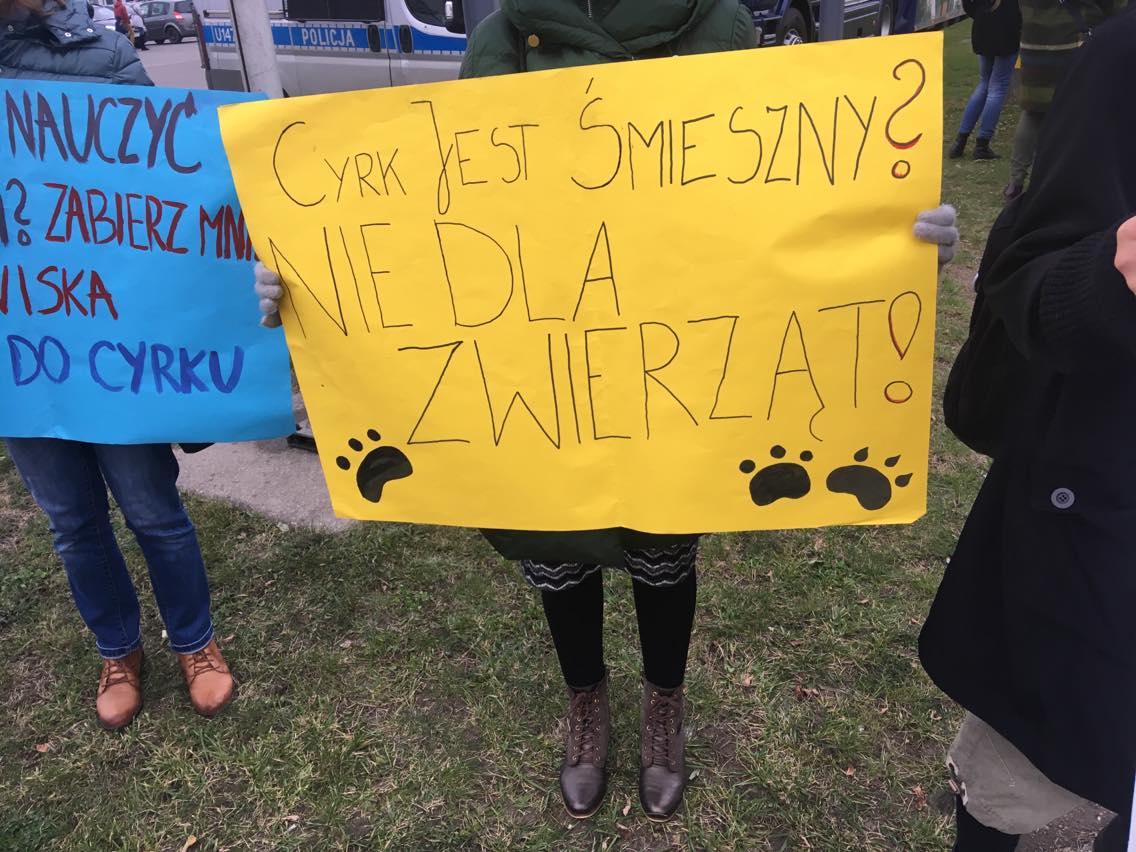 U147 POLICJA
NAUCZYĆ
? ZABIERZ
DO CYRKU
CYRK JEST ŚMIESZNY?
NIE DLA
ZWIERZĄT!